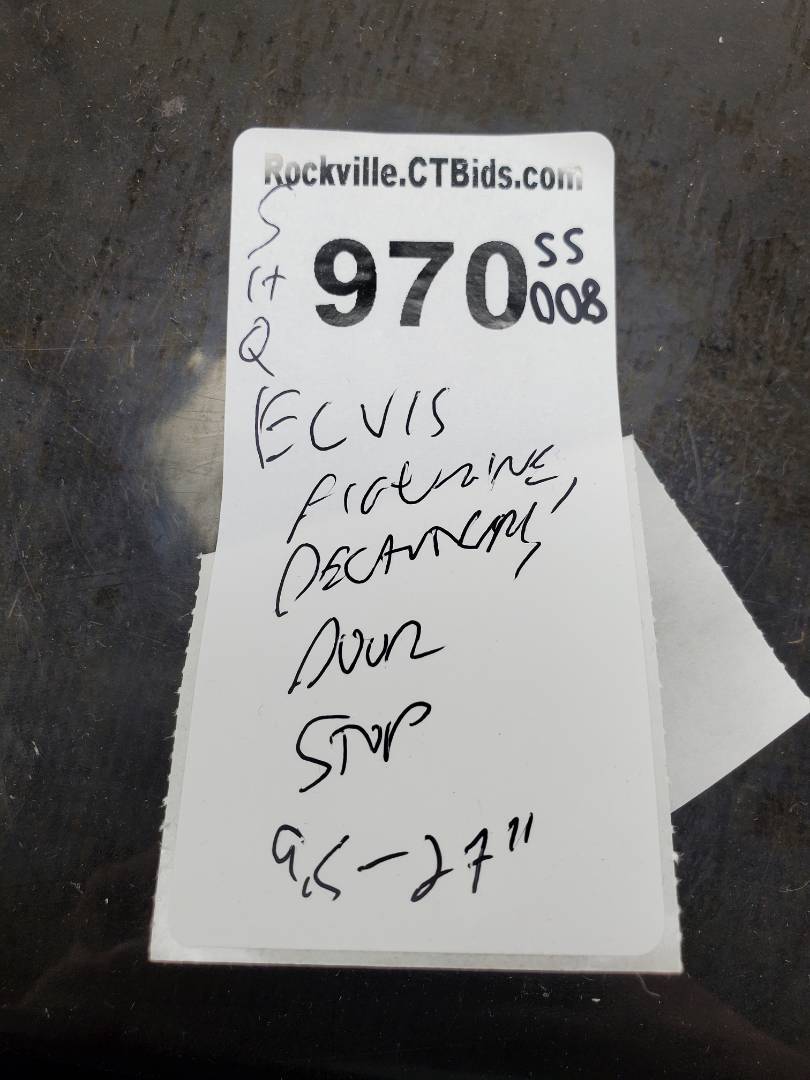 Rockville.CTBids.com
970 SS
008
S
H
Q
ELVIS
FIGURINE,
DOOR
STOP
9.5-27"